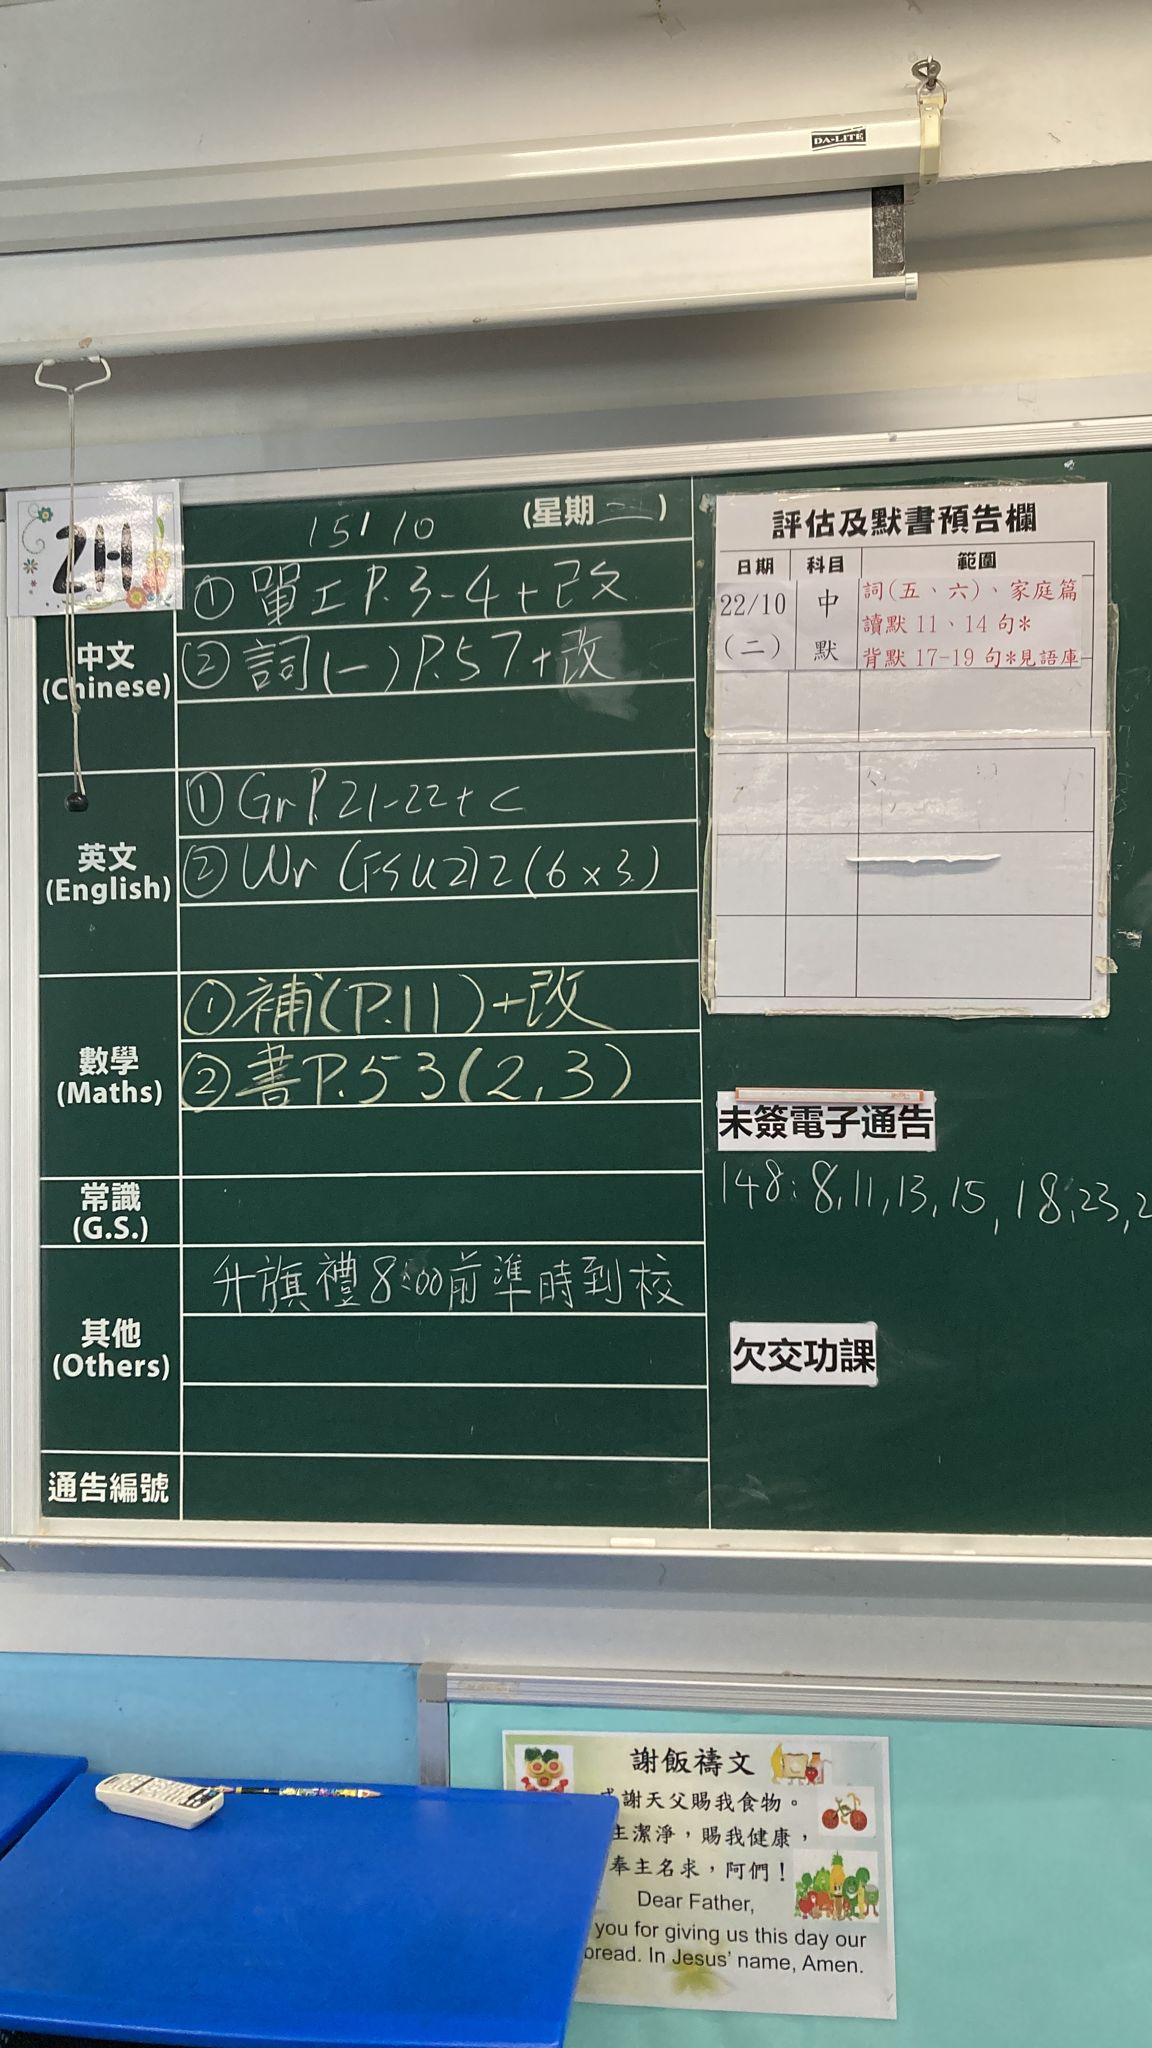 DA-LITE
2H
15/10 (星期二)
中文
(Chinese)
① 單工 P.3-4 + 改
② 詞(一) P.57 + 改
英文
(English)
① Gr P.21-22 + c
② Wr (FS U2) 2 (6 x 3)
數學
(Maths)
① 補(P.11) + 改
② 書 P.53 (2, 3)
常識
(G.S.)
其他
(Others)
升旗禮 8:00前準時到校
通告編號
評估及默書預告欄
日期 科目 範圍
22/10 (二) 中默 詞(五、六)、家庭篇
讀默 11、14 句*
背默 17-19 句*見語庫
未簽電子通告
148: 8, 11, 13, 15, 18, 23,
欠交功課
謝飯禱文
謝天父賜我食物。
主潔淨,賜我健康,
奉主名求,阿們!
Dear Father,
you for giving us this day our
bread. In Jesus' name, Amen.